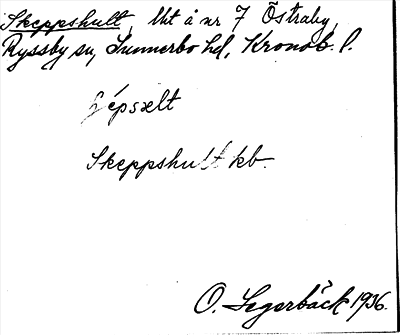 Skeppshult lht å nr 7 Östraby,
Ryssby sn, Sunnerbo hd, Kronob. l.
Skeppshult kb.
O. Segerbäck 1936.